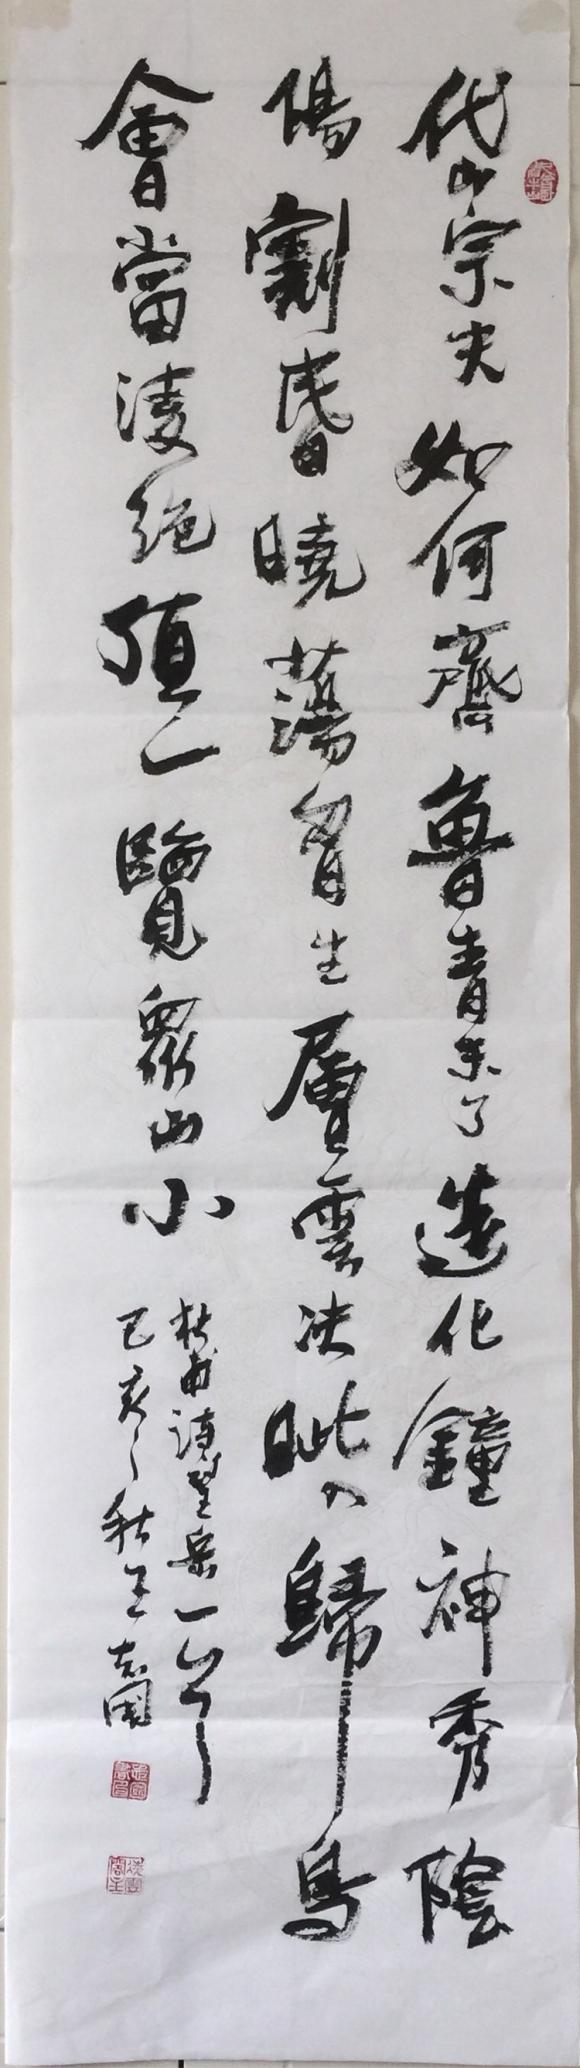 岱宗夫如何齊魯青未了造化鐘神秀陰
陽割昏曉蕩胷生層雲決眦入歸鳥
會當淩絕頂一覽眾山小
杜甫詩望岳一首
己亥之秋王志國